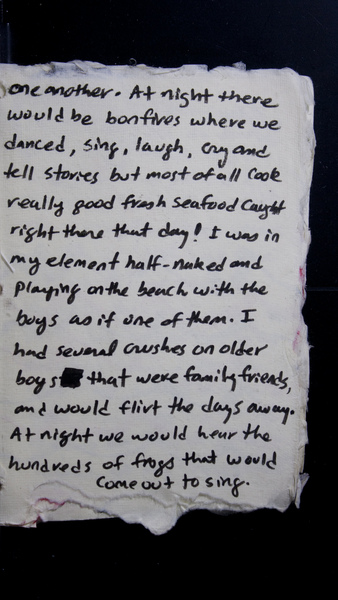 one another. At night there
would be bonfires where we
danced, sing, laugh, cry and
tell stories but most of all cook
really good fresh seafood caught
right there that day! I was in
my element half-naked and
playing on the beach with the
boys as if one of them. I
had several crushes on older
boys that were family friends,
and would flirt the days away.
At night we would hear the
hundreds of frogs that would
come out to sing.